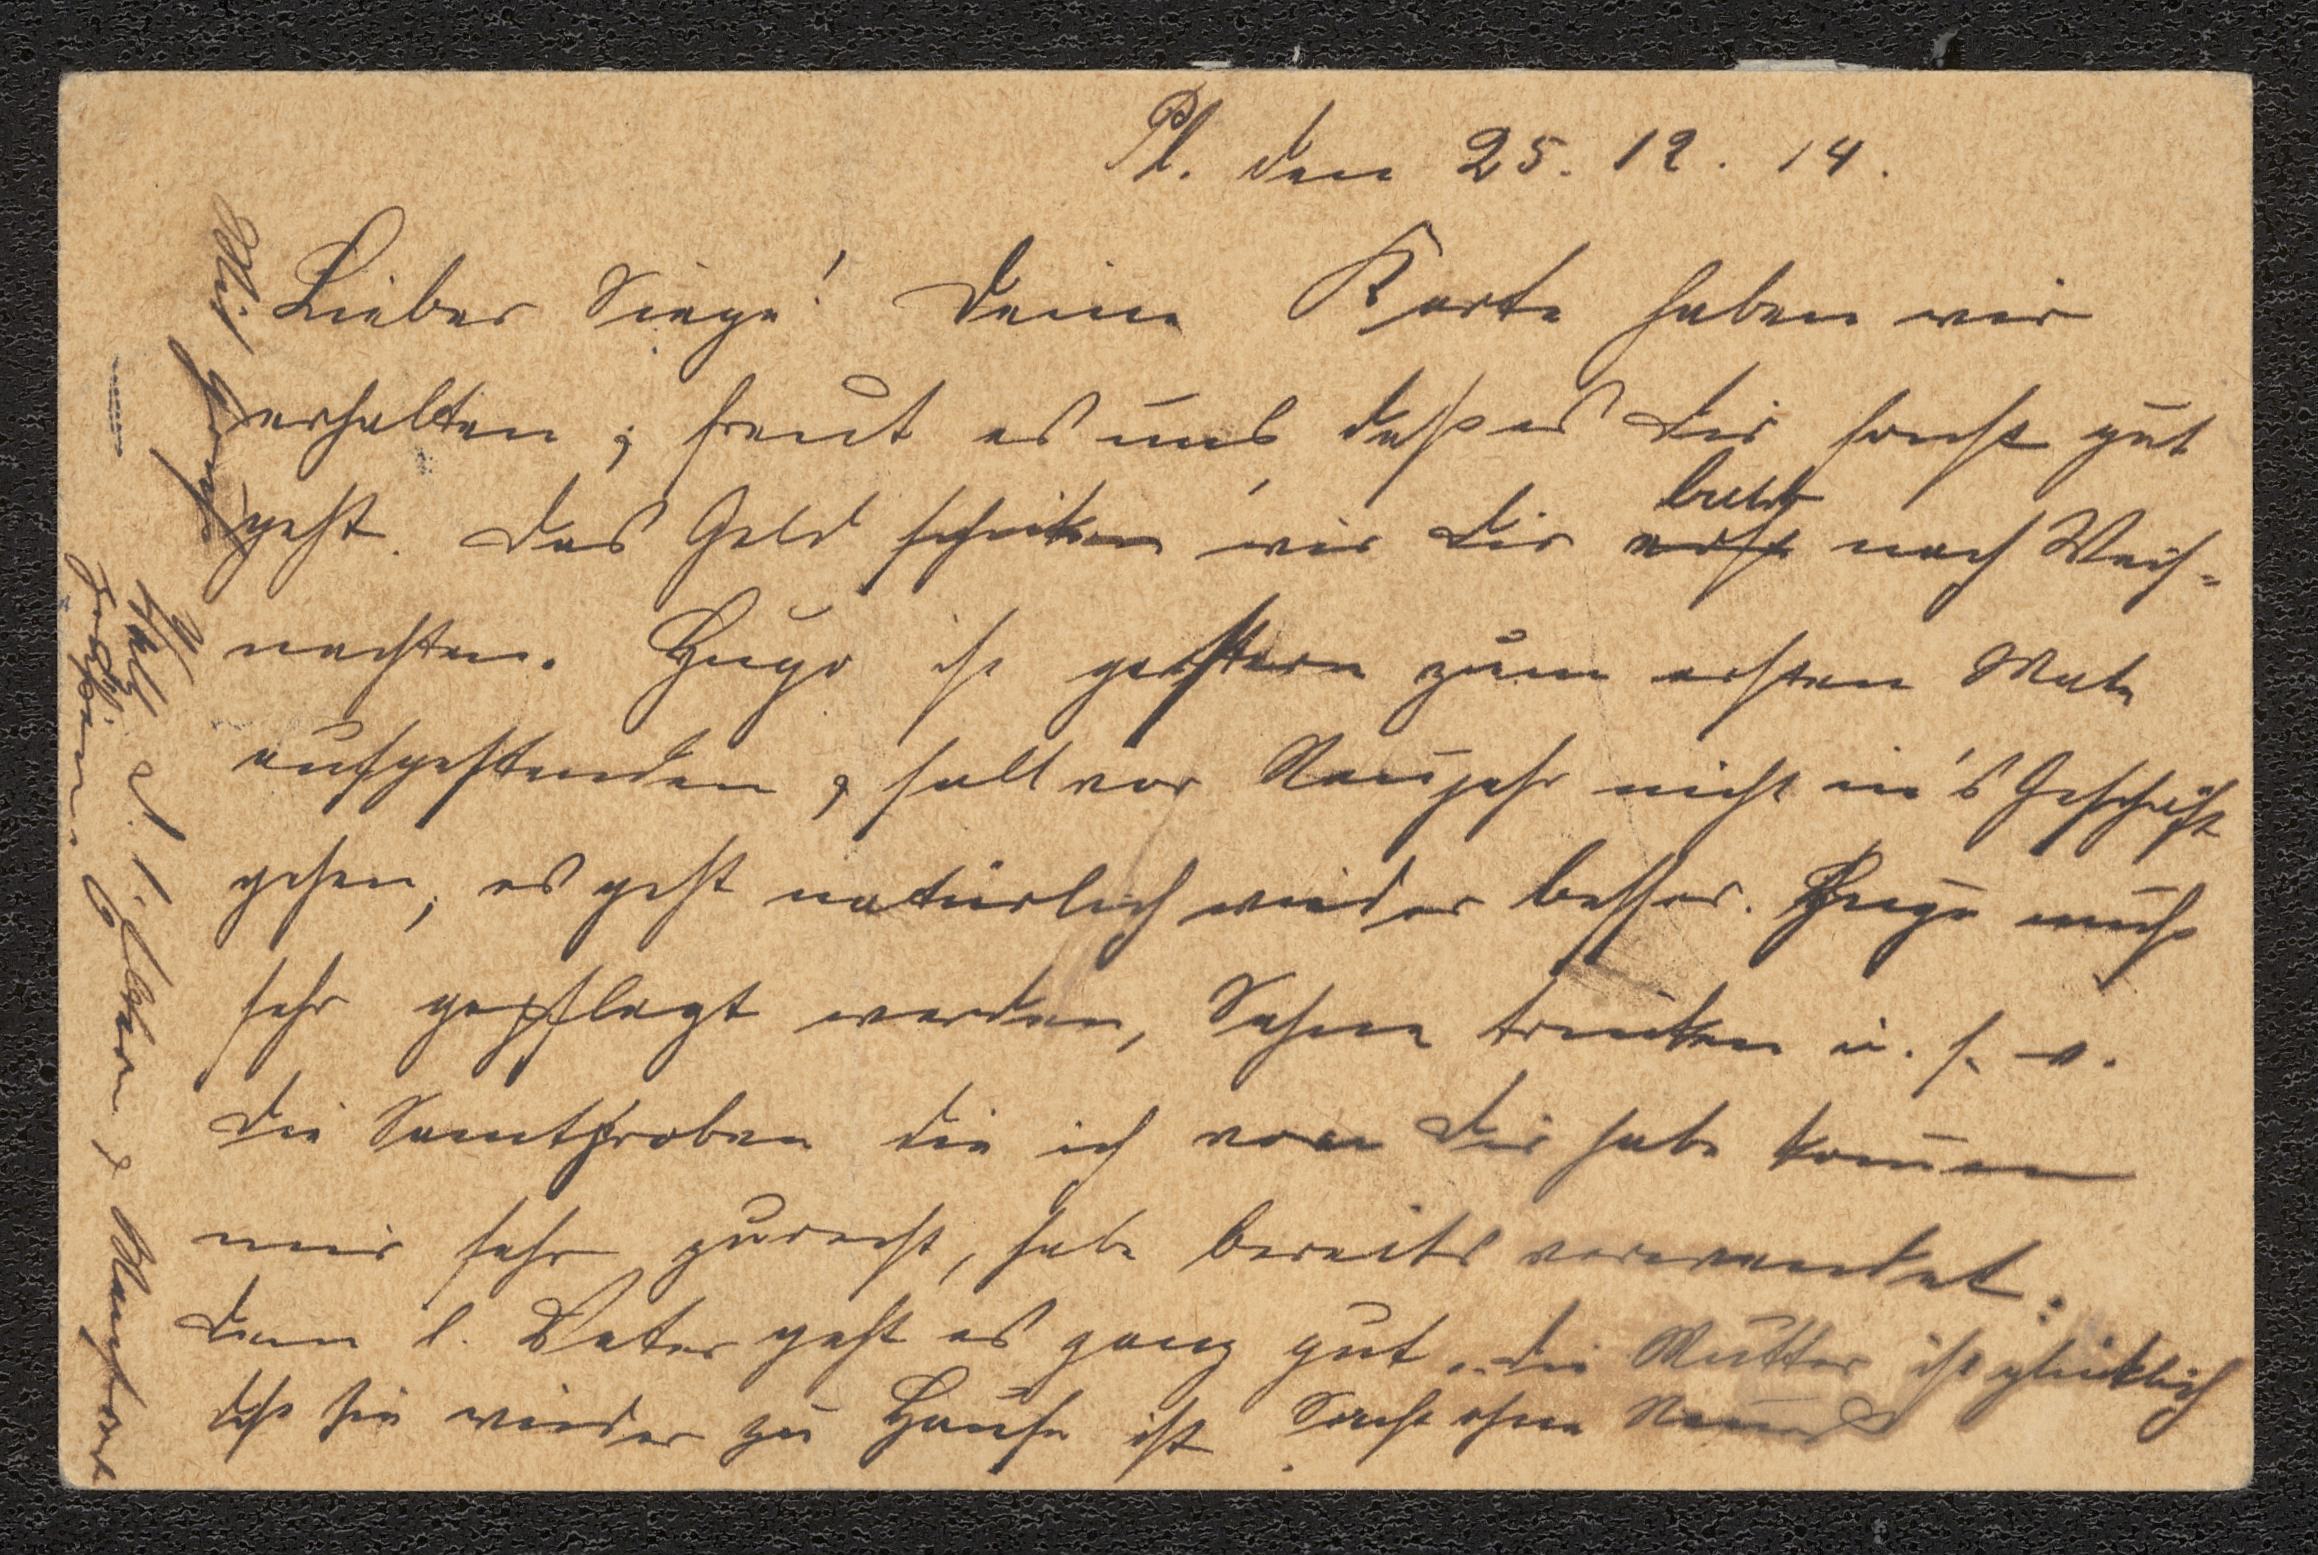 Pl. den 25. 12. 14.
Lieber Siege! Deine Karte haben wir
erhalten, freut es uns, daß es Dir sonst gut
geht. Das Geld schicken wir Dir bald nach Weih-
nachten. Hugo ist gestern zum ersten Male
aufgestanden & soll vor Neujahr nicht in's Geschäft
gehen, es geht natürlich wieder besser. Hugo muß
sehr gepflegt werden, Sahne trinken u. s. w.
Die Samtproben die ich von Dir habe kommen
mir sehr zurecht, habe bereits verwendet.
Dem l. Vater geht es ganz gut, die Mutter ist glücklich
daß sie wieder zu Hause ist. Sonst ohne Neues
Mit
d. l. Eltern &